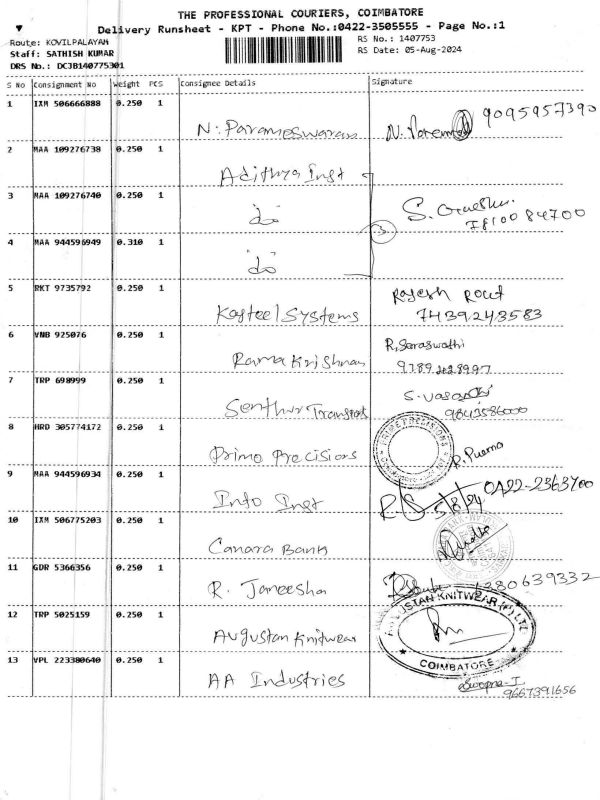 THE PROFESSIONAL COURIERS, COIMBATORE
Delivery Runsheet - KPT - Phone No.:0422-3505555 - Page No.:1
Route: KOVILPALAYAM
RS No.: 1407753
Staff: SATHISH KUMAR
RS Date: 05-Aug-2024
DRS No.: DCJB140775301
S No Consignment No Weight PCS Consignee Details Signature
1 IXM 506666888 0.250 1 N. Parameswaran 9095957390
2 MAA 109276738 0.250 1 Adithya Inst
3 MAA 109276740 0.250 1 do S. Ganesh 7810084700
3
4 MAA 944596949 0.310 1 do
5 RKT 9735792 0.250 1 Kasteel Systems Rajesh Rout
7439243583
6 VNB 925076 0.250 1 Rama Krishnan R. Saraswathi
7 TRP 698999 0.250 1 Senthur Transport S. Vasanthi
8 HRD 305774172 0.250 1 Primo Precisions R. Puerna
9 MAA 944596934 0.250 1 Info Inst 5/8/24 0422-2363700
10 IXM 506775203 0.250 1 Canara Bank
11 GDR 5366356 0.250 1 R. Janeesha 6380639332
12 TRP 5025159 0.250 1 Augustan Knitwear AUGUSTAN KNITWEAR (P) LTD
COIMBATORE
13 VPL 223380640 0.250 1 AA Industries Swapna. I
9667391656